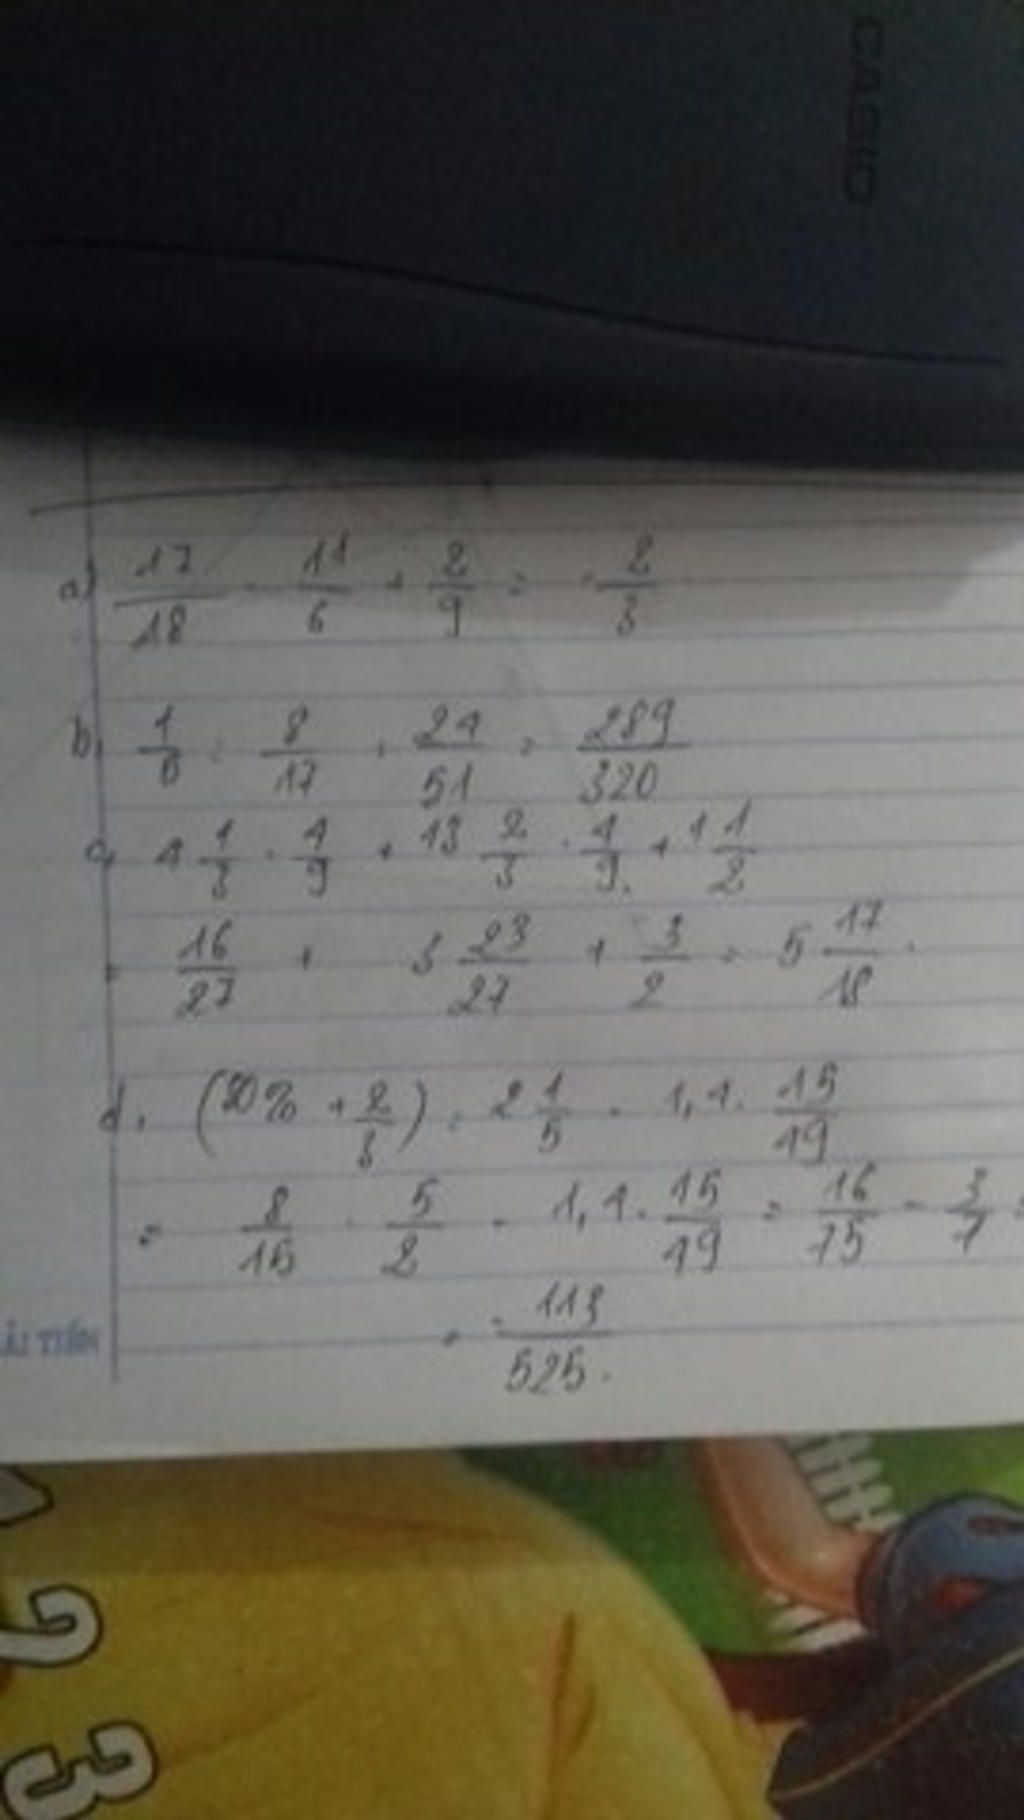 CASIO
a) 17/18 - 11/6 + 2/9 = - 2/3
b, 1/5 : 8/17 . 24/51 = 289/320
c, 4 1/3 . 4/9 + 13 2/3 . 4/9 + 1 1/2
= 16/27 + 3 23/27 + 3/2 = 5 17/18 .
d. (20% + 2/3) : 2 1/5 - 1,1 . 15/19
= 8/15 . 5/2 - 1,1 . 15/19 = 16/75 - 3/7 =
= - 113/525 .
ẢI TIẾN
2
3